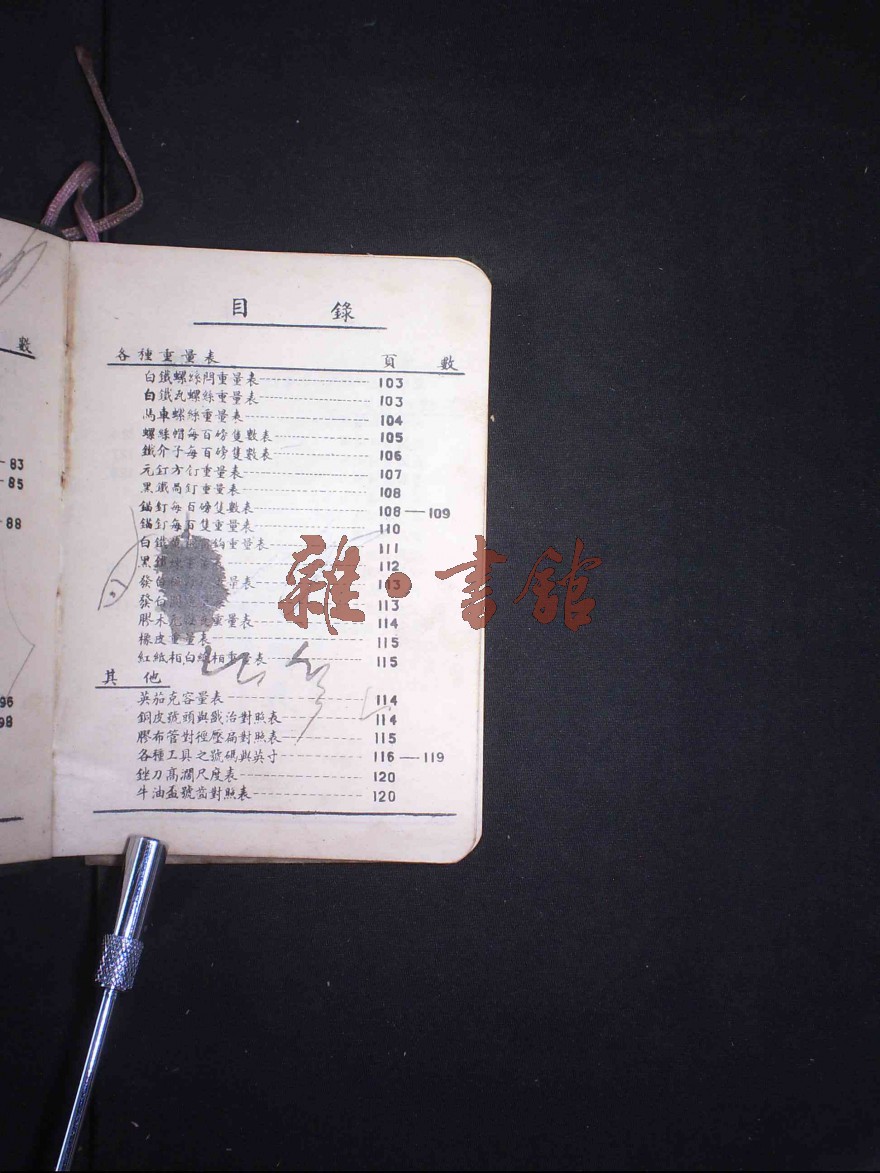 數
83
85
88
96
98
目 錄
各種重量表 頁 數
白鐵螺絲閂重量表 103
白鐵瓦螺絲重量表 103
馬車螺絲重量表 104
螺絲帽每百磅隻數表 105
鐵介子每百磅隻數表 106
元釘方釘重量表 107
黑鐵咼釘重量表 108
錨釘每百磅隻數表 108—109
錨釘每百隻重量表 110
白鐵 鈎重量表 111
黑 112
發 表 113
發白 113
膠木 重量表 114
橡皮重量表 115
紅紙柏,白紙柏重量表 115
其 他
英茄克容量表 114
銅皮號頭與戤治對照表 114
膠布管對徑壓扁對照表 115
各種工具之號碼與英寸 116—119
銼刀高濶尺度表 120
牛油盃號齒對照表 120
雜·書館